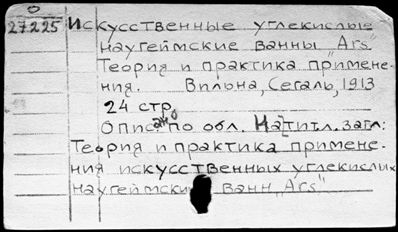 О
27225 Искусственные углекислые
наугеймские ванны „Ars"
Теория и практика примене-
ния. Вильна, Сегаль, 1913
24 стр.
Описано по обл. На титл. загл:
Теория и практика примене-
ния искусственных углекислых
наугеймских ванн „Ars"